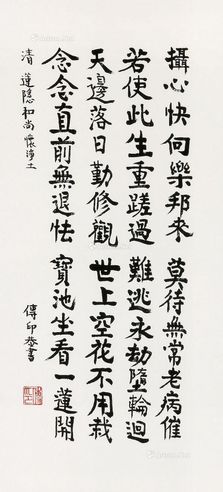 攝心快向樂邦來莫待無常老病催
若使此生重蹉過難逃永劫墮輪迴
天邊落日勤修觀世上空花不用栽
念念直前無退怯寶池坐看一蓮開
清蓮隱和尚懷淨土
傳印敬書